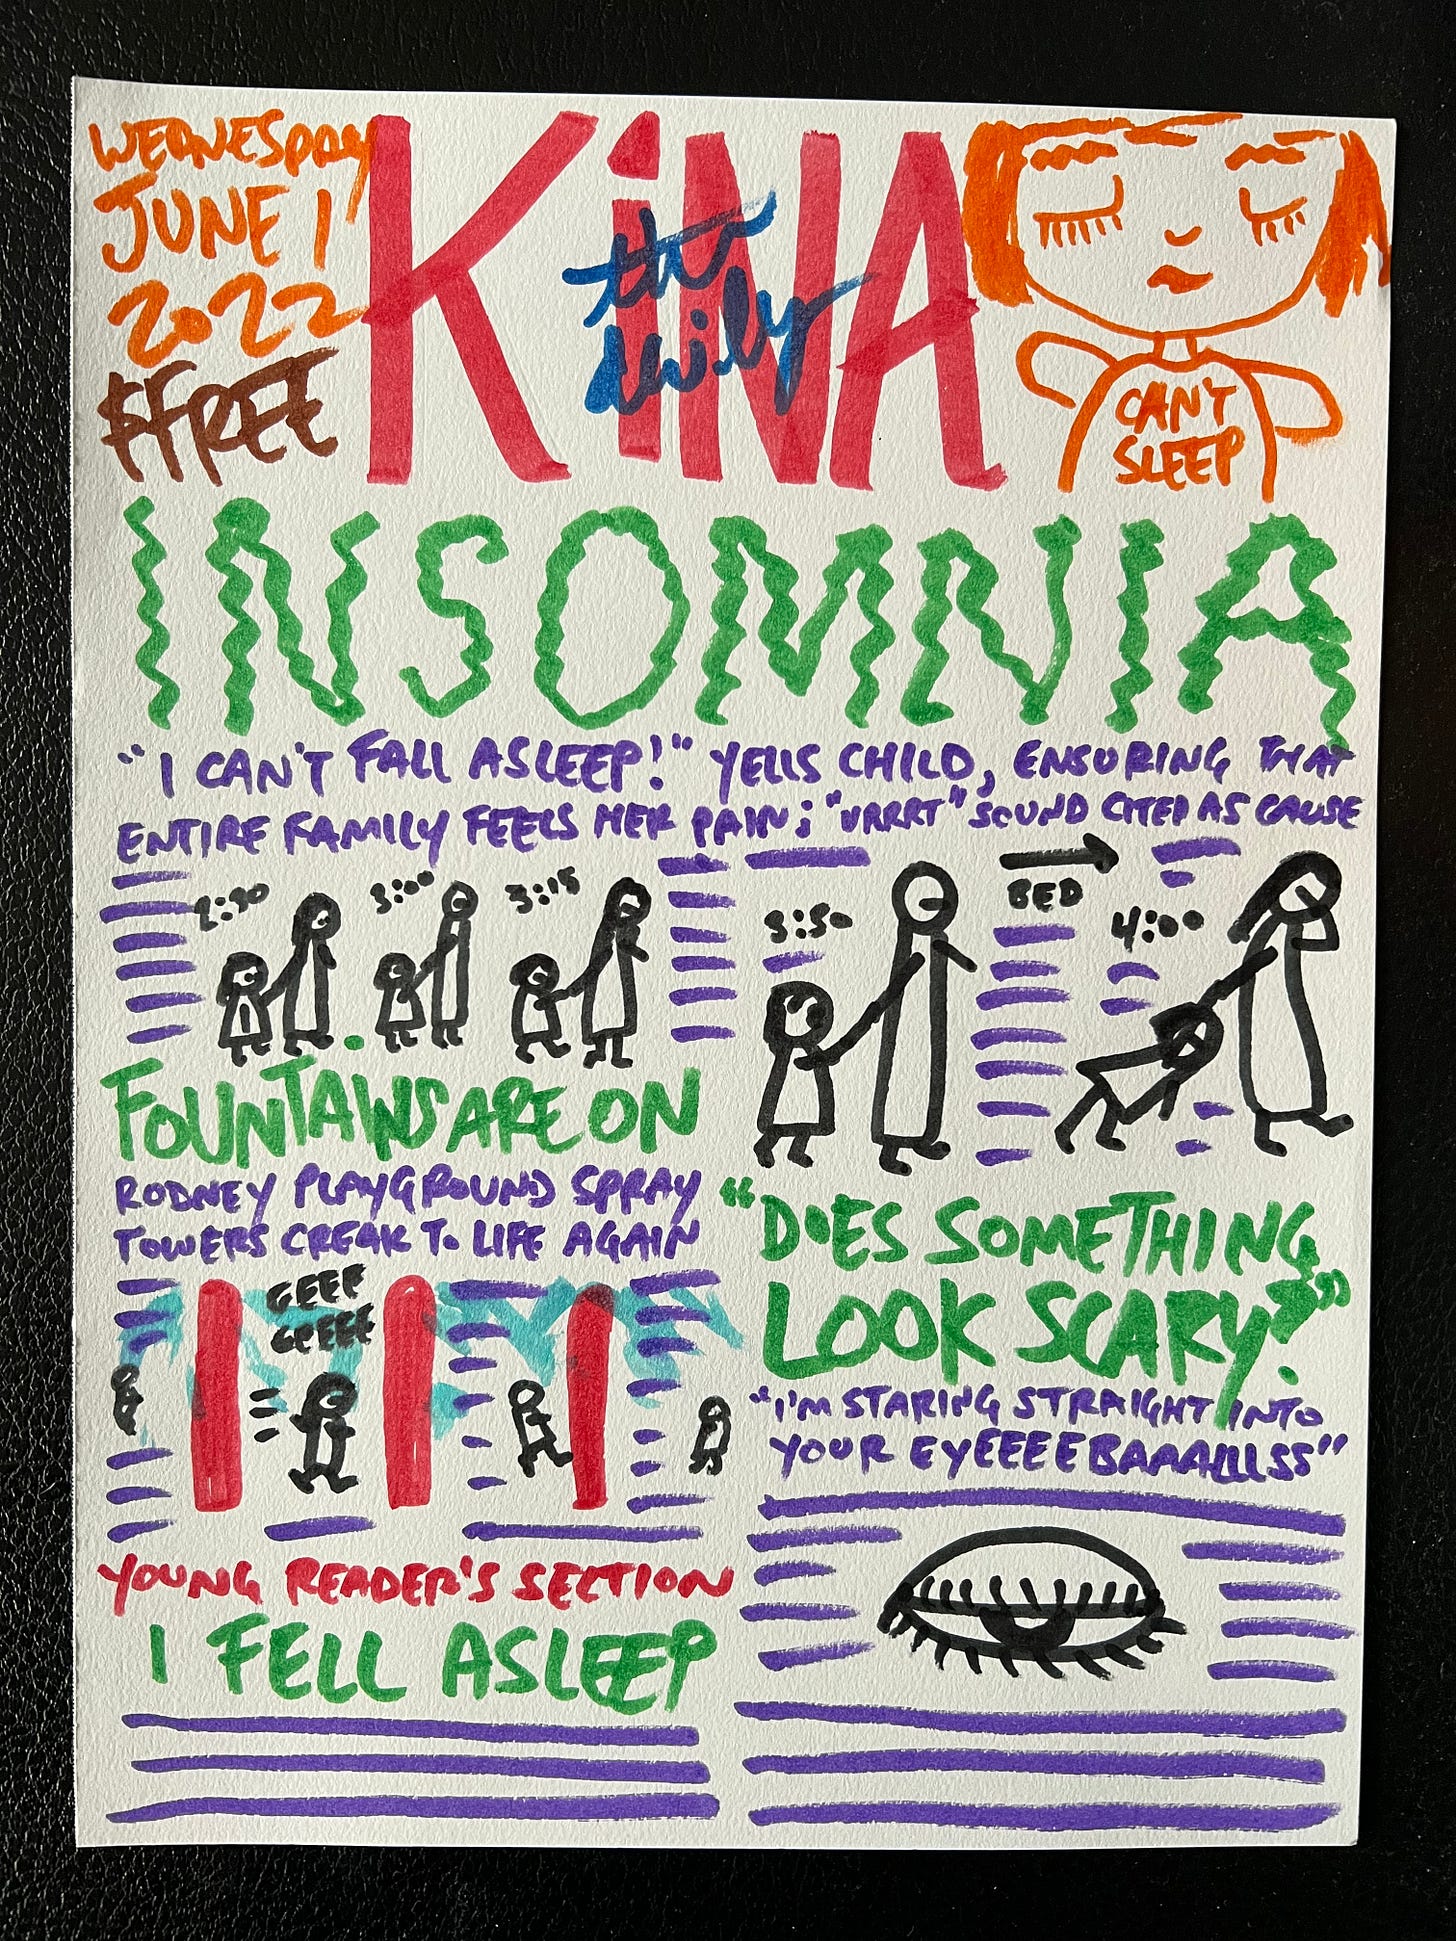 WEDNESDAY
JUNE 1
2022
$FREE
KiNA
the daily
CAN'T
SLEEP
INSOMNIA
"I CAN'T FALL ASLEEP!" YELLS CHILD, ENSURING THAT
ENTIRE FAMILY FEELS HER PAIN; "URRRT" SOUND CITED AS CAUSE
2:30
3:00
3:15
3:30
BED
4:00
FOUNTAINS ARE ON
RODNEY PLAYGROUND SPRAY
TOWERS CREAK TO LIFE AGAIN
GEEE
GEEEE
YOUNG READER'S SECTION
I FELL ASLEEP
"DOES SOMETHING
LOOK SCARY?"
"I'M STARING STRAIGHT INTO
YOUR EYEEEEBAAALLLSS"